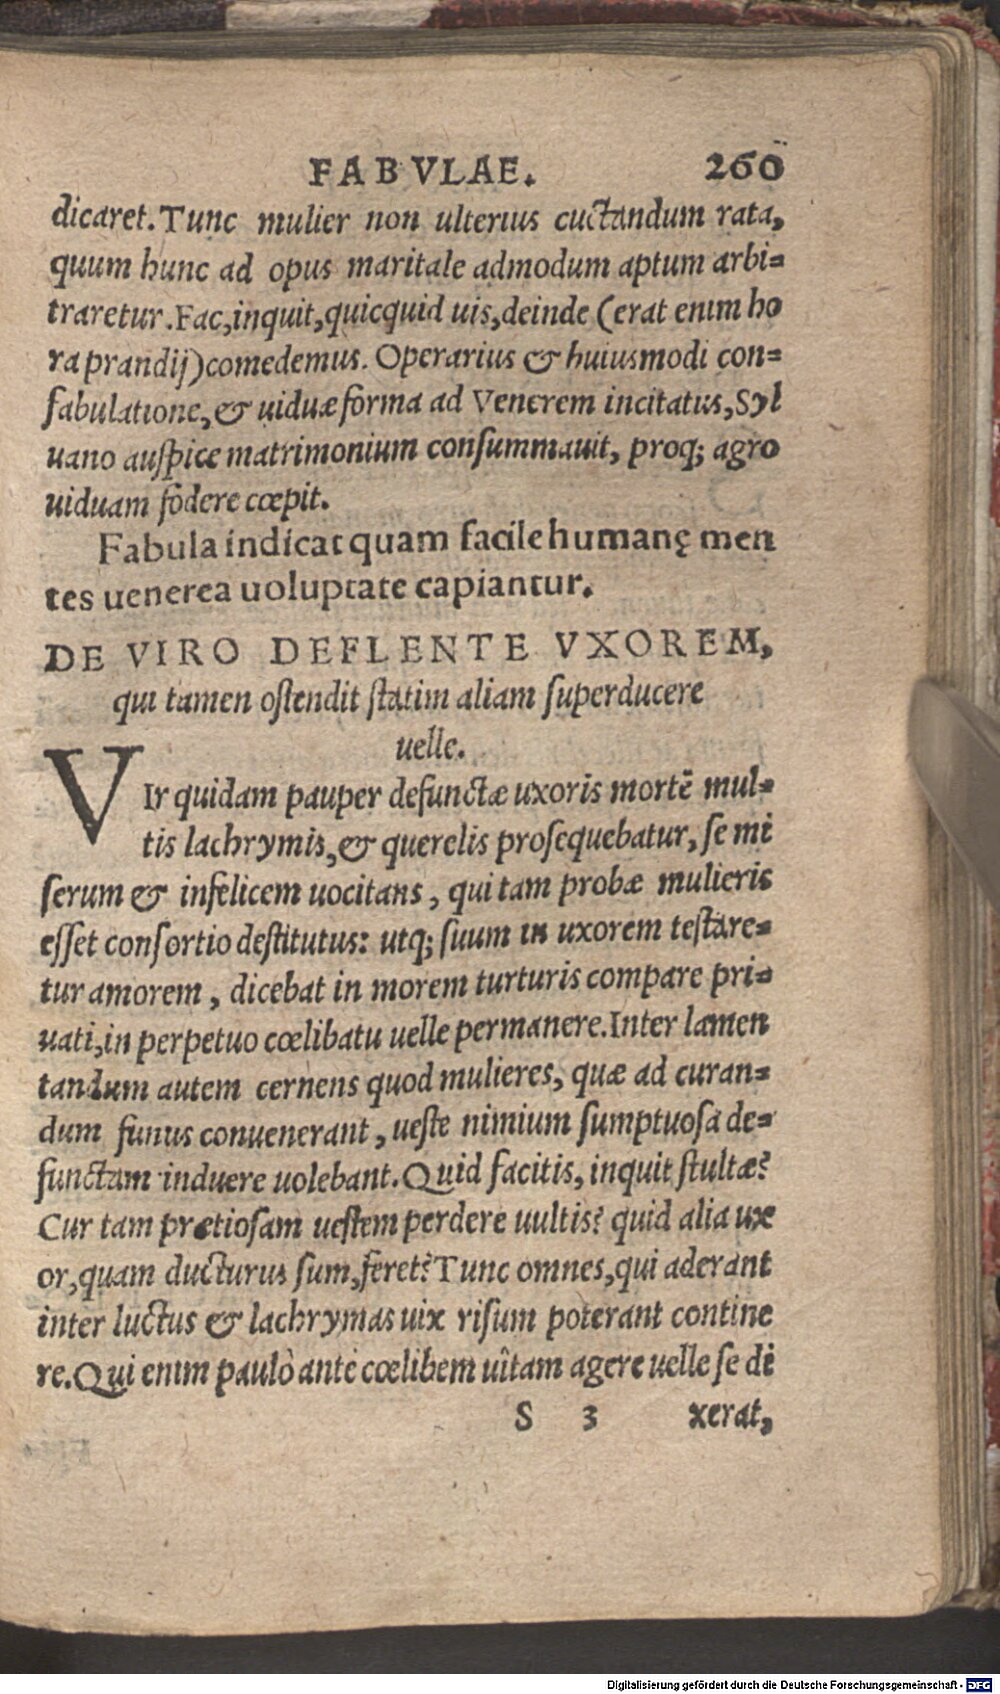 FABVLAE. 260
dicaret. Tunc mulier non ulterius cuctandum rata,
quum hunc ad opus maritale admodum aptum arbi-
traretur. Fac, inquit, quicquid uis, deinde (erat enim ho
ra prandij) comedemus. Operarius & huiusmodi con-
fabulatione, & uiduæ forma ad Venerem incitatus, Syl
uano auspice matrimonium consummauit, proq; agro
uiduam fodere cœpit.
Fabula indicat quam facile humanę men
tes uenerea uoluptate capiantur.
DE VIRO DEFLENTE VXOREM,
qui tamen ostendit statim aliam superducere
uelle.
VIr quidam pauper defunctæ uxoris mortē mul-
tis lachrymis, & querelis prosequebatur, se mi
serum & infelicem uocitans, qui tam probæ mulieris
esset consortio destitutus: utq; suum in uxorem testare-
tur amorem, dicebat in morem turturis compare pri-
uati, in perpetuo cœlibatu uelle permanere. Inter lamen
tandum autem cernens quod mulieres, quæ ad curan-
dum funus conuenerant, ueste nimium sumptuosa de-
functam induere uolebant. Quid facitis, inquit stultæ?
Cur tam prætiosam uestem perdere uultis? quid alia ux
or, quam ducturus sum, feret? Tunc omnes, qui aderant
inter luctus & lachrymas uix risum poterant contine
re. Qui enim paulò ante cœlibem uitam agere uelle se di
S 3 xerat,
Digitalisierung gefördert durch die Deutsche Forschungsgemeinschaft - DFG